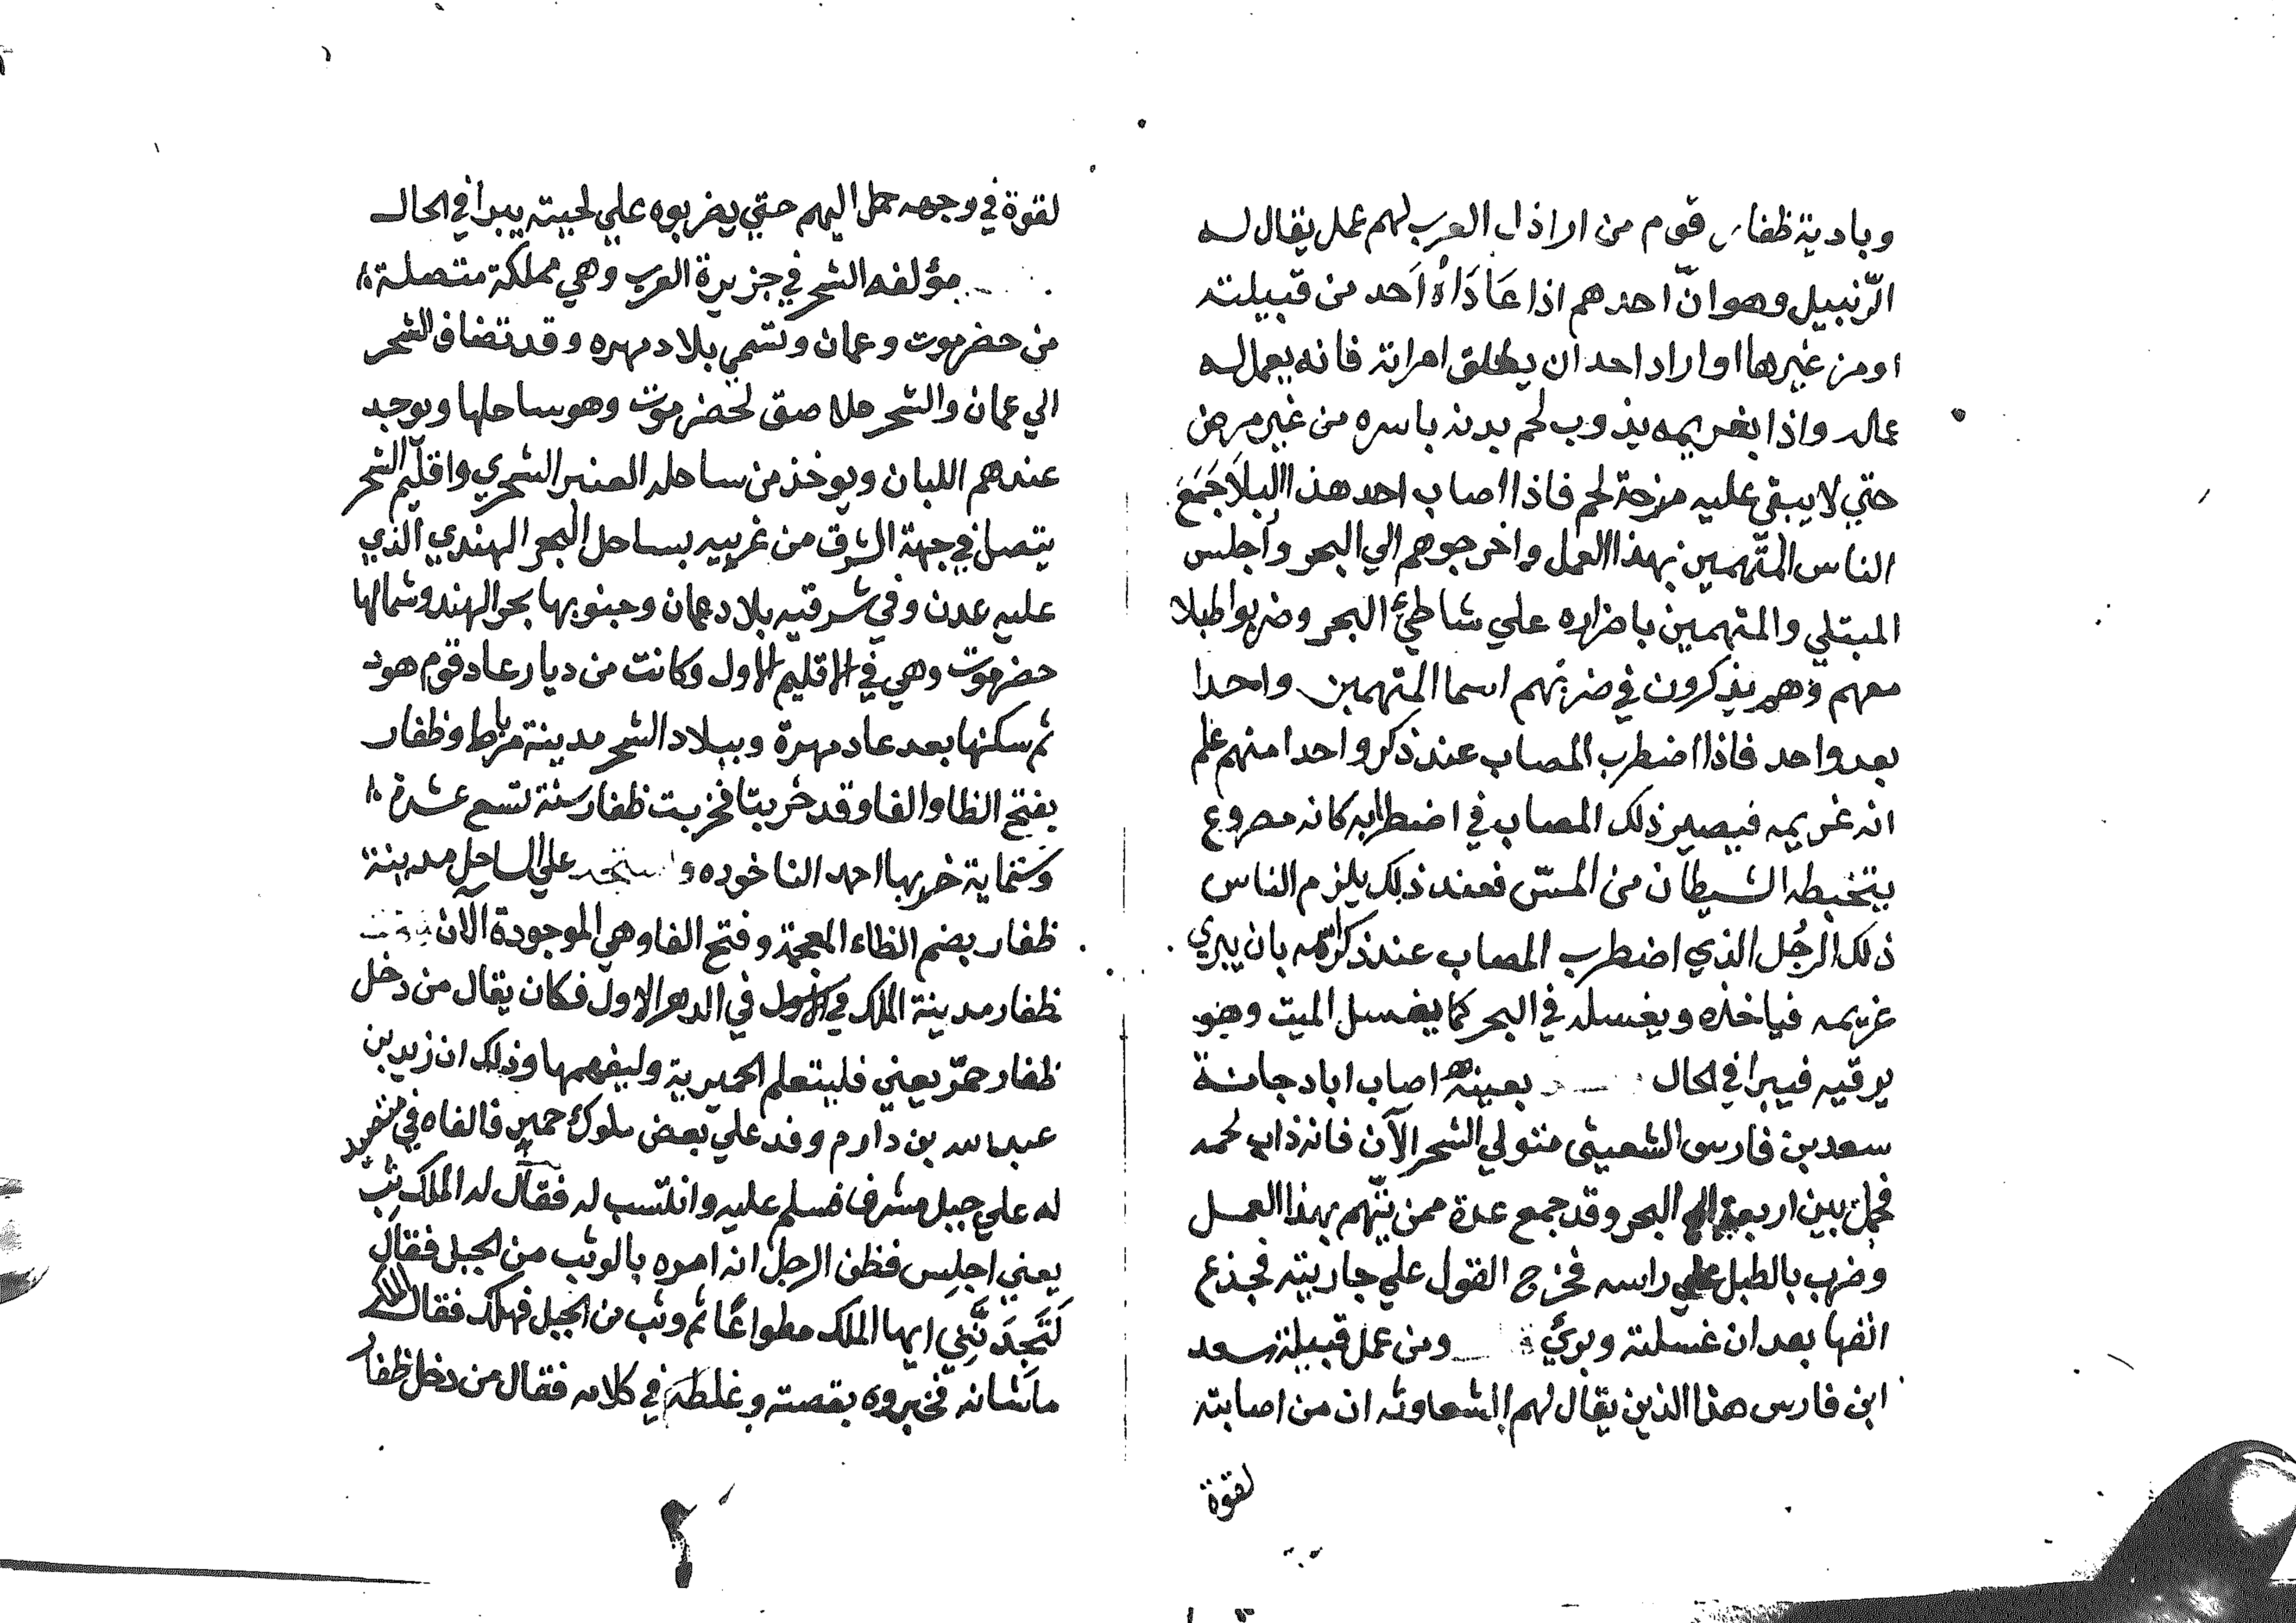 وبادية ظفار قوم من اراذل العرب لهم عمل يقال له
الزنبيل وهو انّ احدهم اذا عَادَاهُ اَحد من قبيلته
او من غيرها او اراد احد ان يطلق امراته فانه يعمل له
عمله واذا بغريمه يذوب لحم بدنه باسره من غير مرض
حتي لا يبقي عليه مزحة لحم فاذا اصاب احد هذا البلا جَمَعَ
الناس المتّهمين بهذا العمل واخرجوهم الي البحر وأجلس
المبتلي والمتهمين باضراره علي شاطئ البحر وضربوا طبلا
معهم وهم يذكرون في ضربهم اسما المتهمين واحدا
بعد واحد فاذا اضطرب المصاب عند ذكر واحدا منهم علم
انه غريمه فيصير ذلك المصاب في اضطرابه كانه مصروع
يتخبطه الشيطان من المسّ فعند ذلك يلزم الناس
ذلك الرجُل الذي اضطرب المصاب عند ذكر اسمه بان يبري
غريمه فياخذه ويغسله في البحر كما يغسل الميت وهو
يرقيه فيبرا في الحال بعينه اصاب اباد جانة
سعد بن فارس الشعيثى متولي الشحر الآن فانه ذاب لحمه
فحمل بين اربعة الي البحر وقد جمع عدة ممن يتّهم بهذا العمل
وضرب بالطبل علي راسه فخرج القول علي جاريته فجذع
انفها بعد ان غسلته وبرئ ومن عمل قبيلة سعد
ابن فارس هذا الذين يقال لهم الشعاوثه ان من اصابته
لقوة
لقوة في وجهه حمل اليهم حتي يضربوه علي لحيته يبرا في الحال
مؤلفه الشحر في جزيرة العرب وهي مملكة متصلة
من حضرموت وعمان وتسمي بلاد مهره وقد تضاف الشحر
الي عمان والشحر ملاصق لحضرموت وهو ساحلها ويوجد
عندهم اللبان ويوخذ من ساحله العنبر الشحري واقليم الشحر
يتصل في جهة الشرق من غربيه بساحل البحر الهندي الذي
عليه عدن وفي شرقيه بلاد عمان وجنوبها بحر الهند وشمالها
حضرموت وهي في الاقليم الاول وكانت من ديار عاد قوم هود
ثم سكنها بعد عاد مهرة وببلاد الشحر مدينة مرباط وظفار
بفتح الظا والفا وقد خربتا فخربت ظفار سنة تسع عشرة
وستماية خربها احمد الناخوده و علي الساحل مدينة
ظفار بضم الظاء المعجمة وفتح الفا وهي الموجودة الآن
ظفار مدينة الملك في الدهر الاول فكان يقال من دخل
ظفار حمّر يعني فليتعلم الحميرية وليفهمها وذلك ان زيد بن
عبد الله بن دارم وفد علي بعض ملوك حمير فالفاه في متصيد
له علي جبل مشرف فسلم عليه وانتسب له فقال له الملك ثِب
يعني اجلس فظن الرجل انه امره بالوثب من الجبل فقال
لَتَجِدَنَّنِي ايها الملك مطواعًا ثم وثب من الجبل فهلك فقال الملك
ما شانه فخبروه بقصته وغلطه في كلامه فقال من دخل ظفار